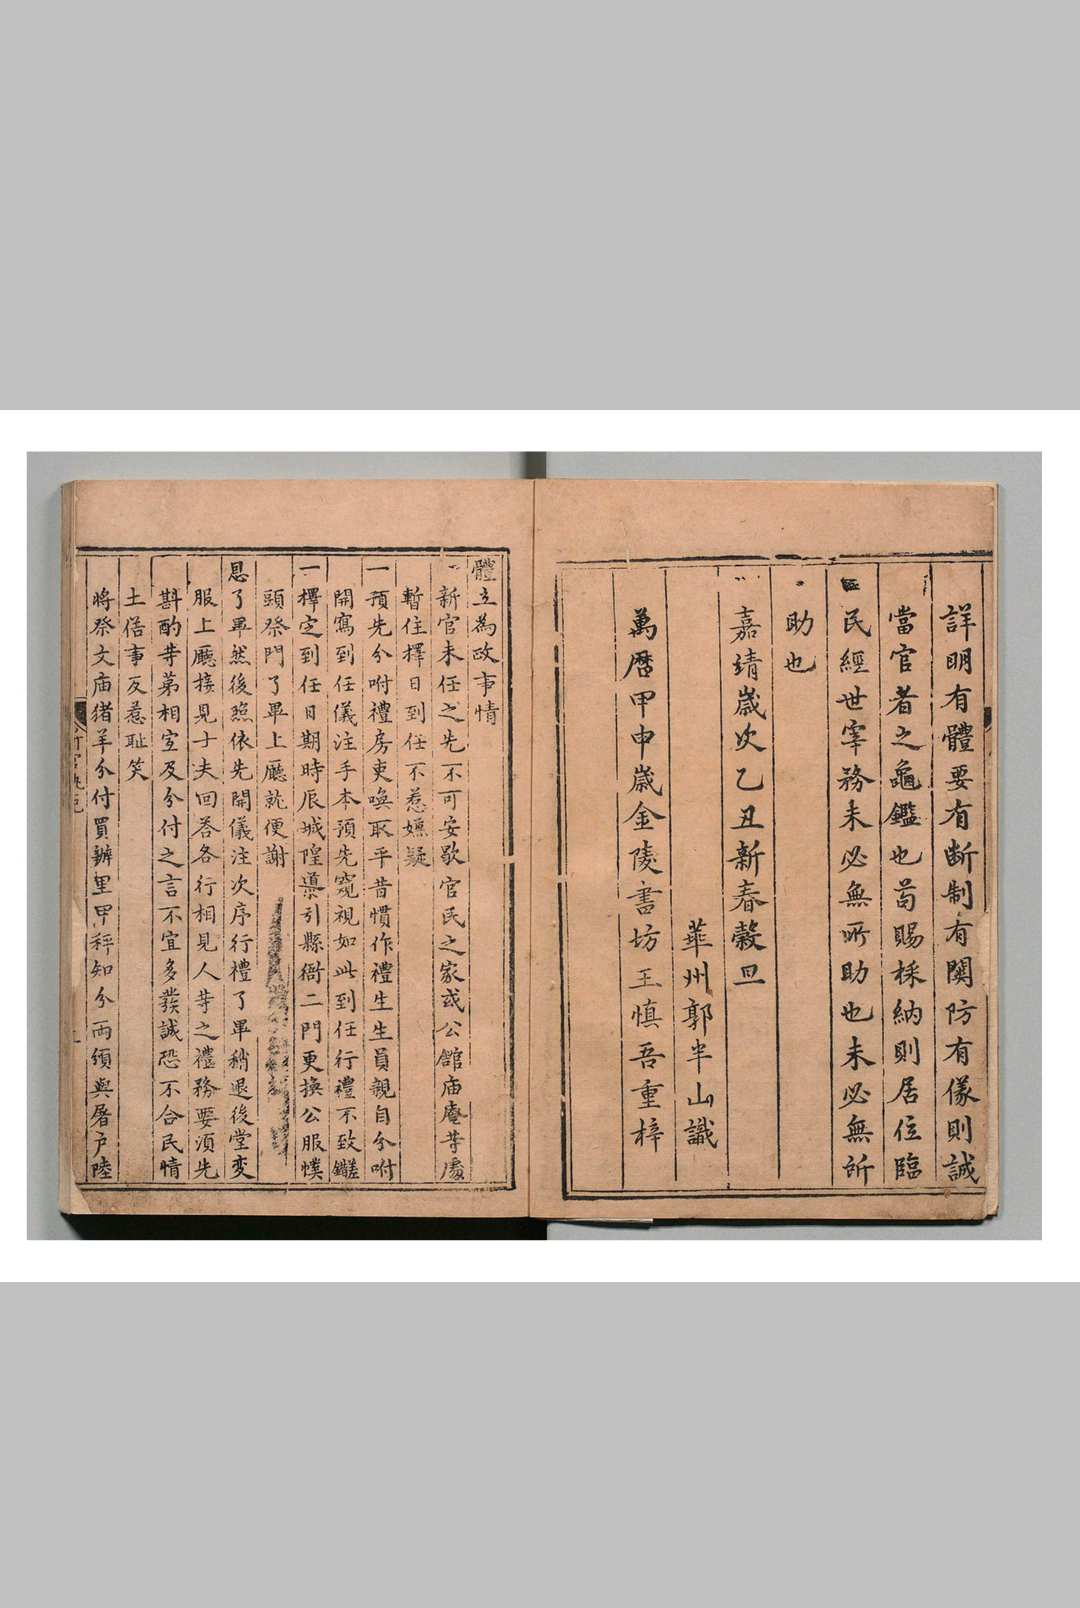 詳明有體要有断制有関防有儀則誠
當官者之龜鑑也苟賜採納則居位臨
民經世宰務未必無所助也未必無所
助也
嘉靖歲次乙丑新春穀旦
華州郭半山識
萬曆甲申歲金陵書坊王慎吾重梓
體立為政事情
新官未任之先不可安歇官民之家或公館庙庵等處
暫住擇日到任不惹嫌疑
一預先分咐禮房吏喚取平昔慣作禮生生員親自分咐
開寫到任儀注手本預先窺視如此到任行禮不致
一擇定到任日期時辰城隍導引縣衙二門更換公服幞
頭祭門了畢上廳就便謝
恩了畢然後照依先開儀注次序行禮了畢稍退後堂变
服上廳接見士夫回答各行相見人等之禮務要須先
斟酌等第相宜及分付之言不宜多發誠恐不合民情
土俗事反惹耻笑
將祭文庙猪羊分付買辦里甲秤知分兩須與屠户陸